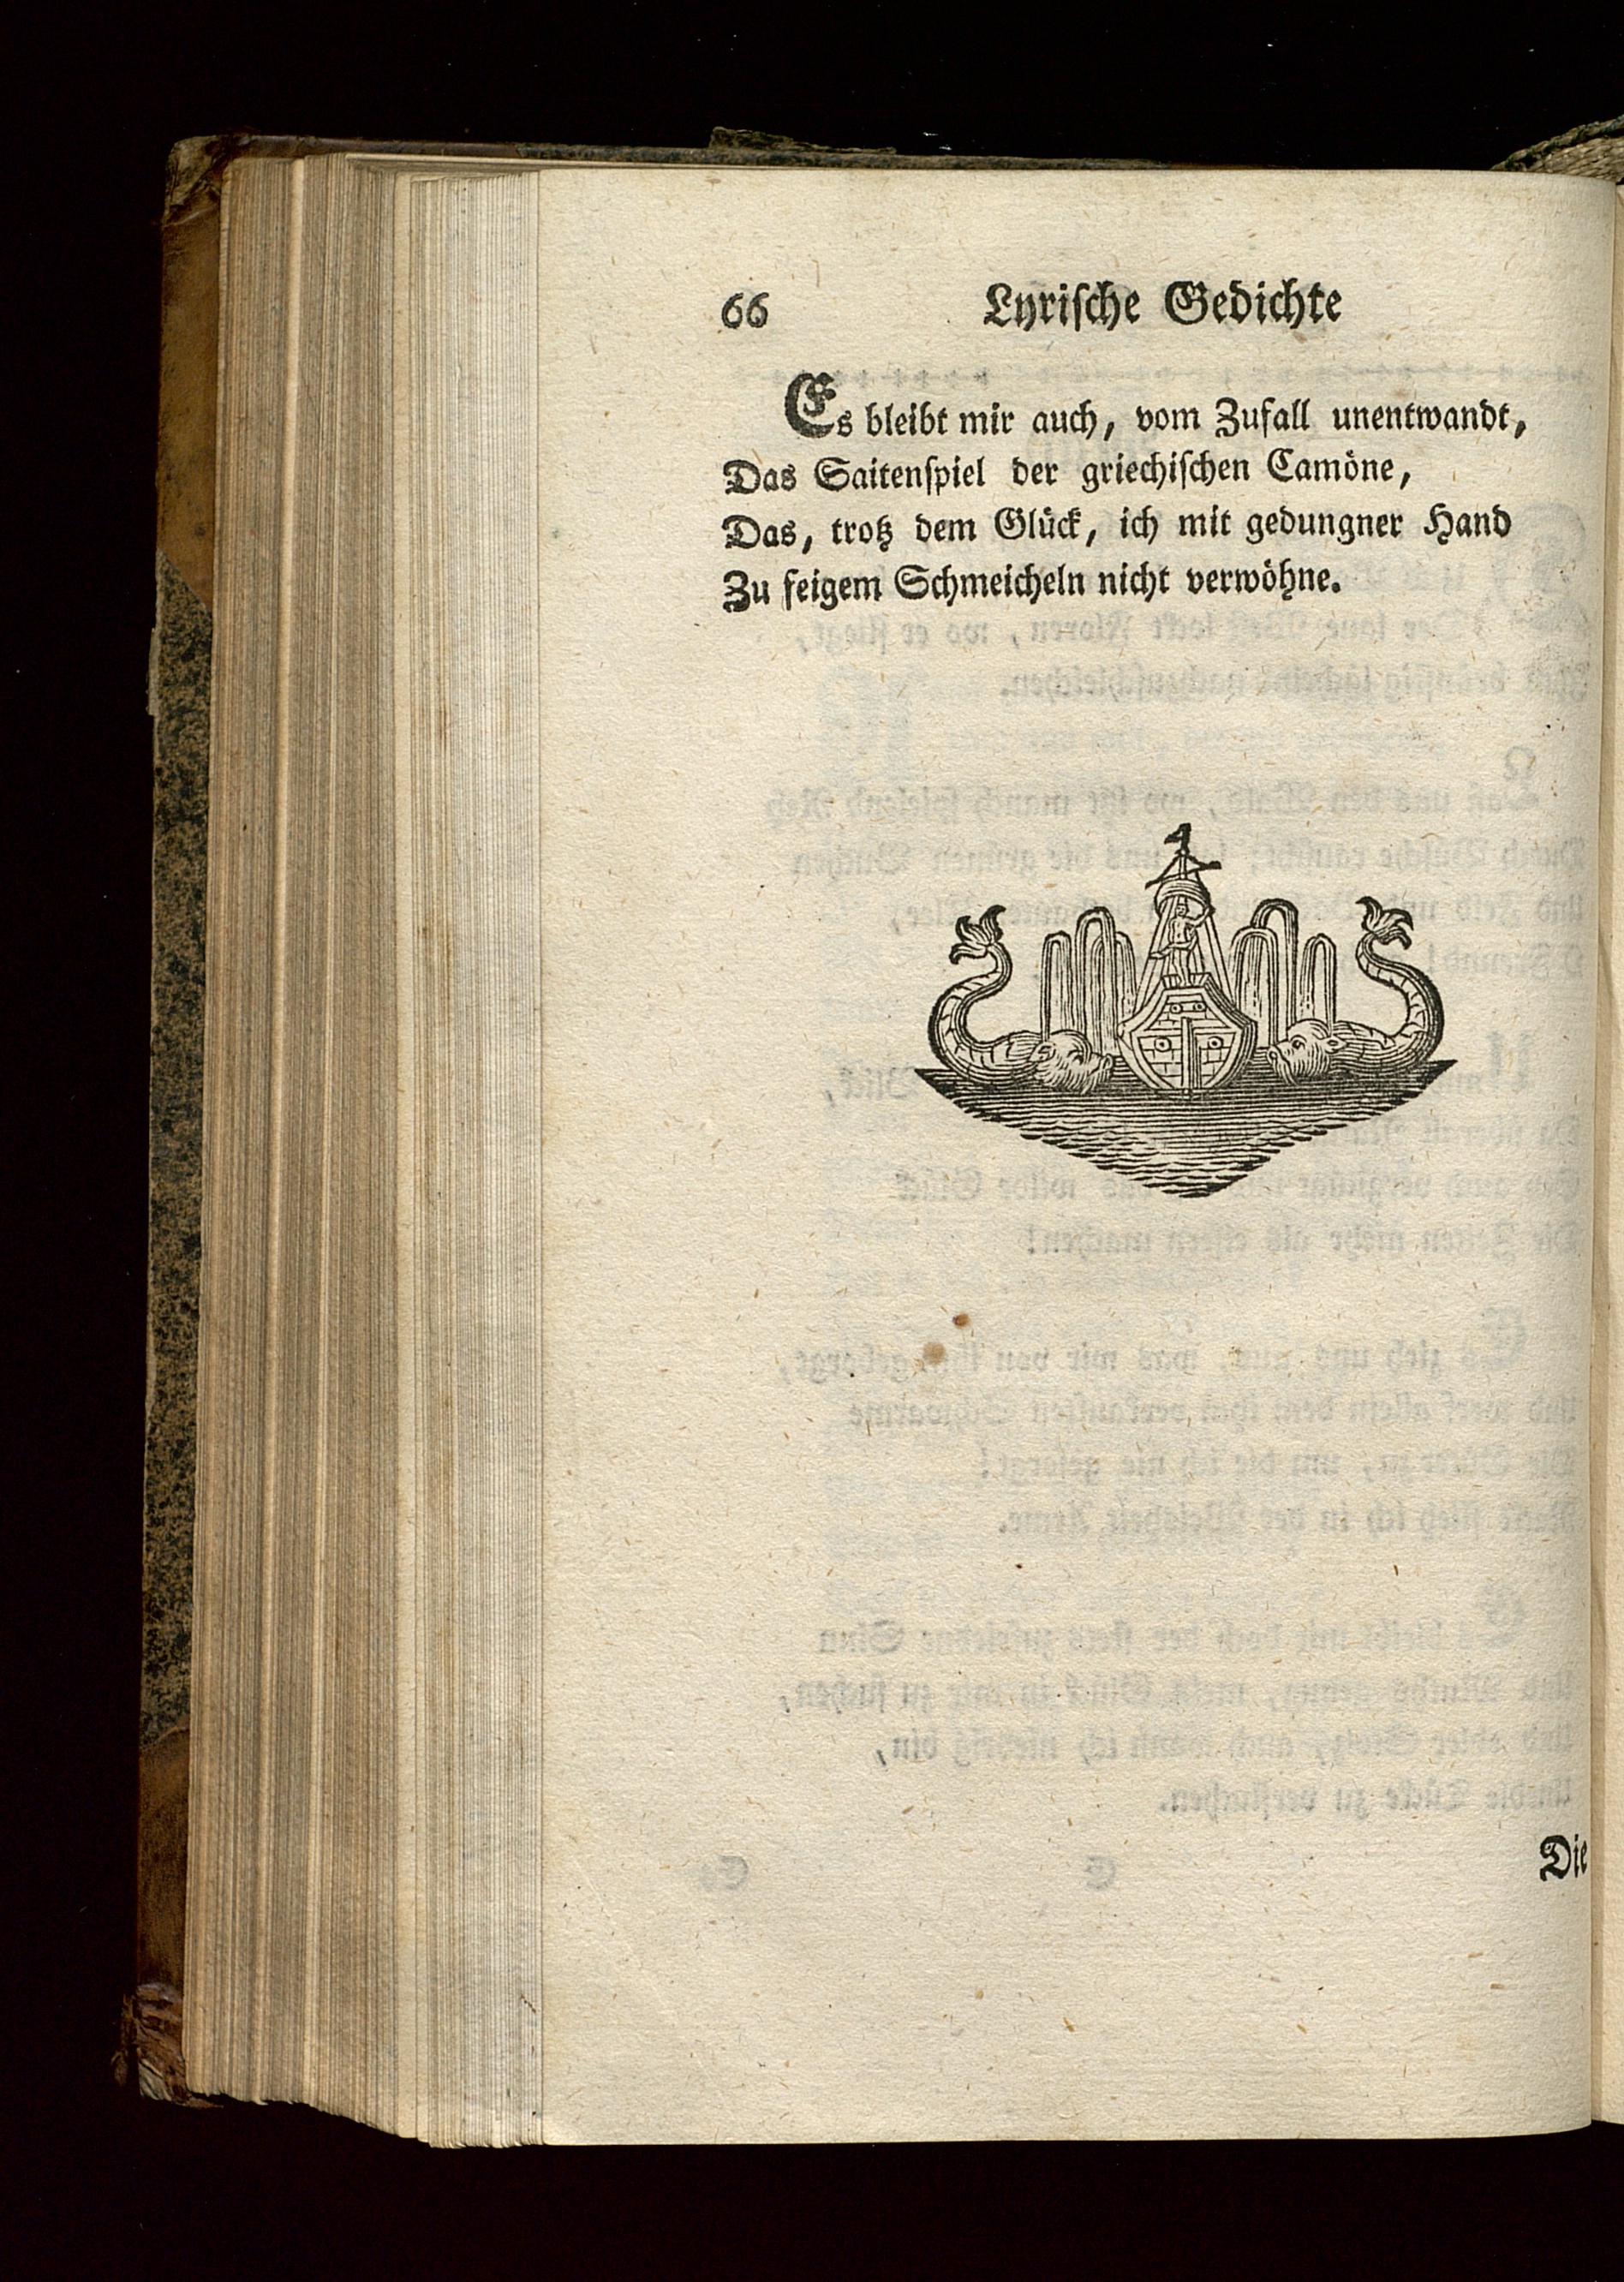 66 Lyriſche Gedichte
Es bleibt mir auch, vom Zufall unentwandt,
Das Saitenſpiel der griechiſchen Camöne,
Das, trotz dem Glück, ich mit gedungner Hand
Zu feigem Schmeicheln nicht verwöhne.
Die